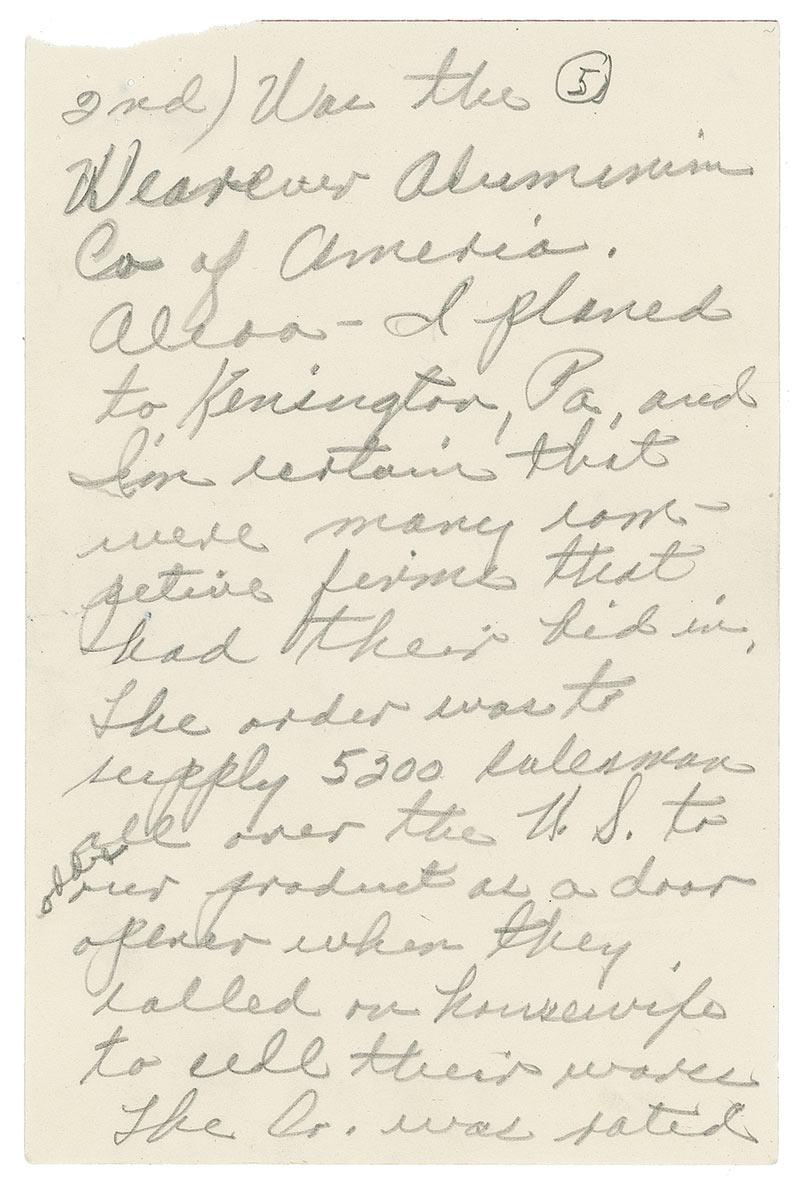 2nd) Was the 5
Wearever Aluminim
Co of Ameria.
Alcoa - I planed
to Kensington, Pa, and
I'm certain that
were many com-
petive firms that
had their bid in,
The order was to
supply 5200 salesman
all over the U.S. to
our product as a door
opener when they
called on housewife
to sell their wares
The Co. was rated